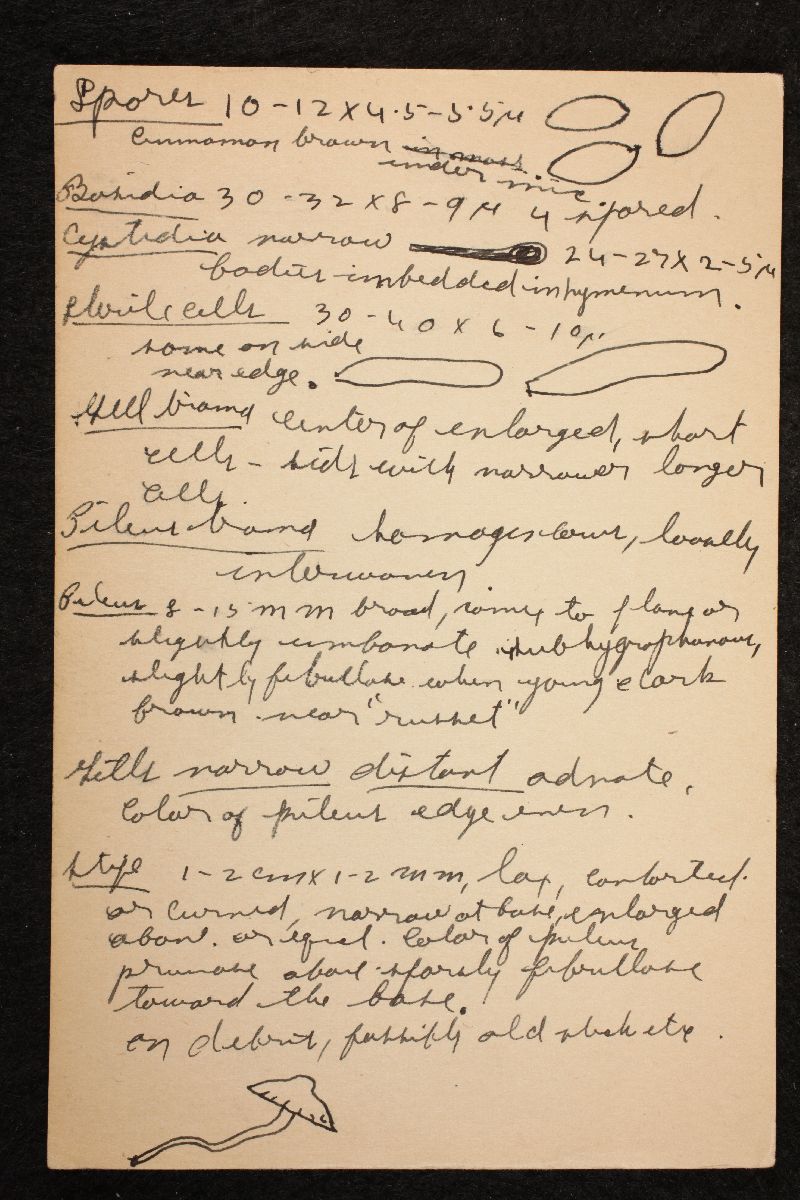 Spores 10-12 x 4.5-5.5µ
Cinnamon brown in mass
under mic
Basidia 30-32 x 8-9µ 4 spored.
Cystidia narrow 24-27 x 2-5µ
bodies imbedded in hymenium.
Sterile cells 30-40 x 6-10µ
some on side
near edge.
Gill trama center of enlarged, short
cells - sids with narrower longer
cells.
Pileus trama homogeneous, loosely
interwoven.
Pileus 8-15 mm broad, convex to plane or
slightly umbonate, subhygrophanous,
slightly fibrillose when young dark
brown near "russet"
Gills narrow distant adnate,
color of pileus edge even.
Stipe 1-2 cm x 1-2 mm, lax, contorted
or curved, narrow at base, enlarged
above. or equal. Color of pileus
pruinose above sparsly fibrillose
toward the base.
on debris, possibly old stick etc.